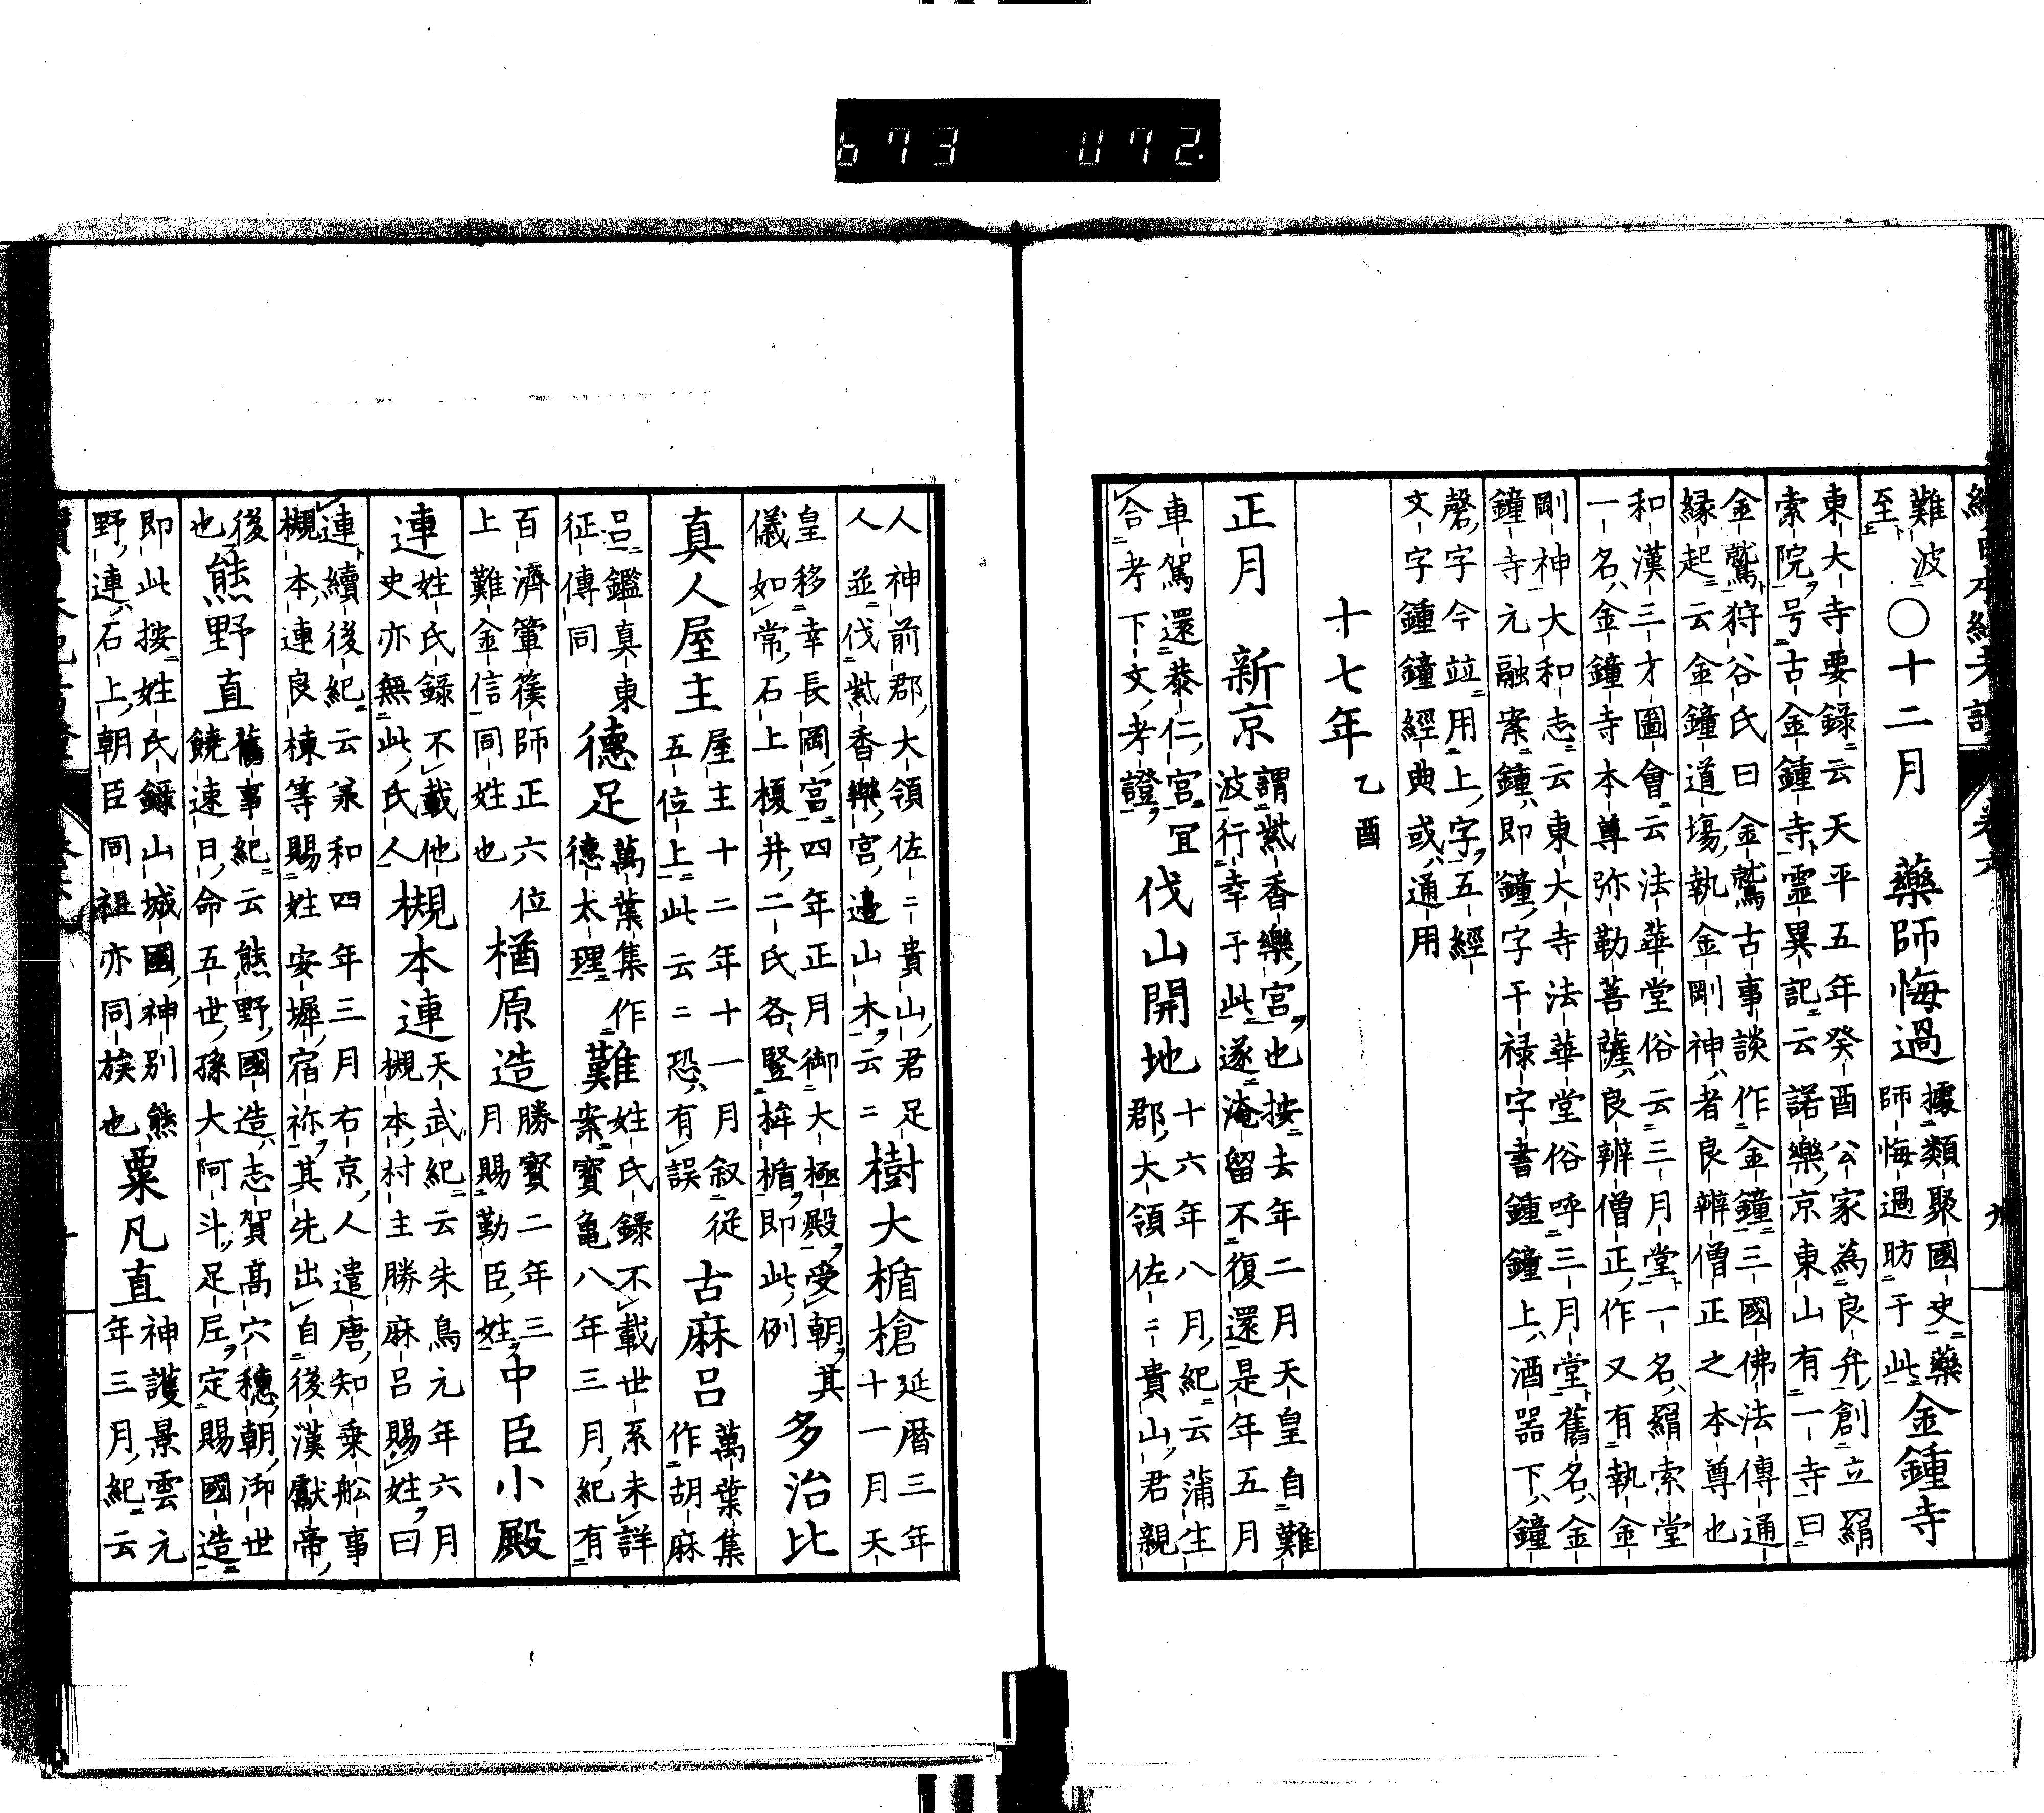 673 072.
難波
至
〇十二月 藥師悔過
據類聚國史藥
師悔過昉于此
金鍾寺
東大寺要録云天平五年癸酉公家為良弁創立羂
索院号古金鍾寺霊異記云諾樂京東山有一寺曰
金鷲狩谷氏曰金鷲古事談作金鐘三國佛法傳通
縁起云金鐘道場執金剛神者良辨僧正之本尊也
和漢三才圖會云法華堂俗云三月堂一名羂索堂
一名金鐘寺本尊弥勒菩薩良辨僧正作又有執金
剛神大和志云東大寺法華堂俗呼三月堂舊名金
鐘寺元融案鐘即鐘字干禄字書鍾鐘上酒器下鐘
磬字今竝用上字五經
文字鍾鐘經典或通用
十七年
乙酉
正月 新京
謂紫香樂宮也按去年二月天皇自難
波行幸于此遂淹留不復還是年五月
車駕還恭仁宮冝
合考下文考證
伐山開地
十六年八月紀云蒲生
郡大領佐二貴山君親
人神前郡大領佐二貴山君足
人並伐紫香樂宮邉山木云二
樹大楯槍
延暦三年
十一月天
皇移幸長岡宮四年正月御大極殿受朝其
儀如常石上榎井二氏各竪桙楯即此例
多治比
真人屋主
屋主十二年十一月叙從
五位上此云二恐有誤
古麻呂
萬葉集
作胡麻
呂鑑真東
征傳同
德足
萬葉集作
德太理
難
姓氏録不載世系未詳
案寳亀八年三月紀有
百濟箪篌師正六位
上難金信同姓也
楢原造
勝寳二年三
月賜勤臣姓
中臣小殿
連
姓氏録不載他
史亦無此氏人
槻本連
天武紀云朱鳥元年六月
槻本村主勝麻呂賜姓曰
連續後紀云承和四年三月右京人遣唐知乗舩事
槻本連良棟等賜姓安墀宿祢其先出自後漢獻帝
後
也
熊野直
舊事紀云熊野國造志賀髙穴穂朝御世
饒速日命五世孫大阿斗足尼定賜國造
即此按姓氏録山城國神別熊
野連石上朝臣同祖亦同族也
粟凡直
神護景雲元
年三月紀云